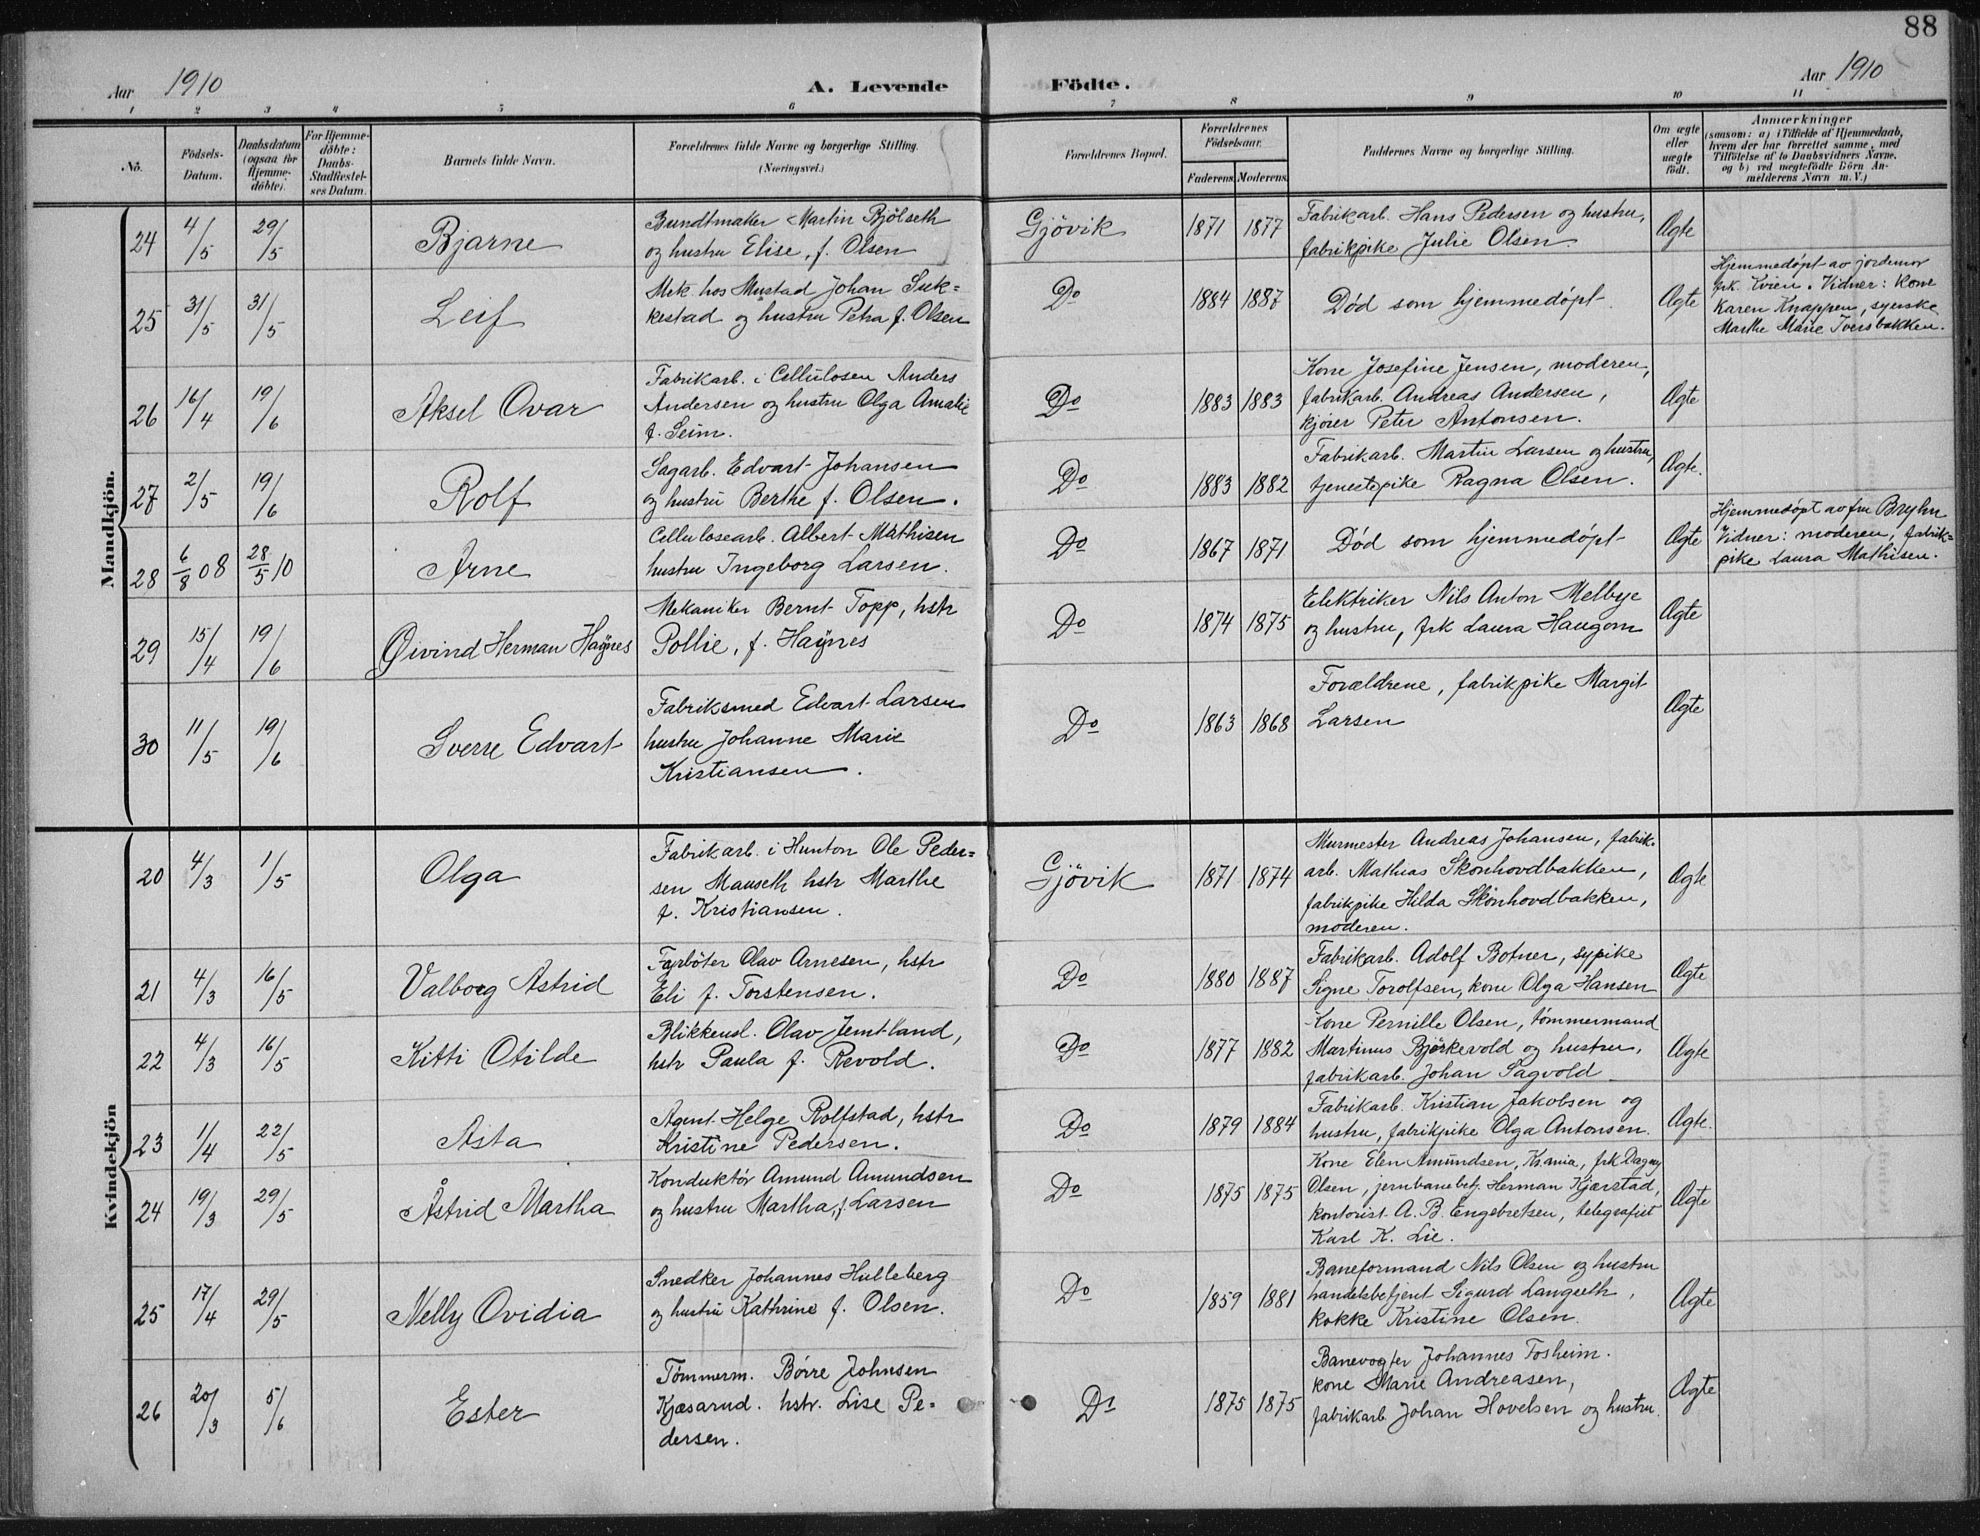 88
Aar 1910
A. Levende Födte.
Aar 1910
1 2 3 4 5 6 7 8 9 10 11
No.
Födsels-Datum.
Daabsdatum (ogsaa for Hjemmedöbte).
For Hjemmedöbte: Daabs-Stadfæstelses Datum.
Barnets fulde Navn.
Forældrenes fulde Navne og borgerlige Stilling.
(Næringsvei.)
Forældrenes Bopæl.
Forældrenes Födselsaar.
Faderens. Moderens.
Faddernes Navne og borgerlige Stilling.
Om ægte eller uægte födt.
Anmærkninger
(saasom: a) i Tilfælde af Hjemmedaab, hvem der har forrettet samme, med Tilföielse af to Daabsvidners Navne, og b) ved uægtefödte Börn Anmelderens Navn m. V.)
Mandkjön.
24 4/5 29/5 Bjarne
Bundtmaker Martin Bjölseth
og hustru Elise, f. Olsen
Gjövik 1871 1877
Fabrikarb. Hans Pedersen og hustru,
fabrikpike Julie Olsen
Ægte
25 31/5 31/5 Leif
Mek. hos Mustad Johan Suk=
kestad og hustru Petra f. Olsen
Do 1884 1887
Død som hjemmedøpt
Ægte
Hjemmedøpt av jordemor
frk. Kvien. Vidner: kone
Karen Knappen, syerske
Marthe Marie Iversbakken.
26 16/4 19/6 Aksel Ovar
Fabrikarb. i Cellulosen Anders
Andersen og hustru Olga Amalie
f. Seim.
Do 1883 1883
Kone Josefine Jensen, moderen,
fabrikarb. Andreas Andersen,
kjører Peter Antonsen.
Ægte
27 2/5 19/6 Rolf
Sagarb. Edvart Johansen
og hustru Berthe f. Olsen.
Do 1883 1882
Fabrikarb. Martin Larsen og hustru,
tjenestepike Ragna Olsen.
Ægte.
28 6/8 08 28/5 10 Arne
Cellulosearb. Albert Mathisen
hustru Ingeborg Larsen.
Do 1867 1871
Død som hjemmedøpt
Ægte
Hjemmedøpt av fru Bryhn
Vidner: moderen, fabrik=
pike Laura Mathisen.
29 15/4 19/6 Øivind Herman Haÿnes
Mekaniker Bernt Topp, hstr
Pollie, f. Haÿnes
Do 1874 1875
Elektriker Nils Anton Melbye
og hustru, frk Laura Haugom
Ægte
30 11/5 19/6 Sverre Edvart
Fabriksmed Edvart Larsen
hustru Johanne Marie
Kristiansen.
Do 1863 1868
Forældrene, fabrikpike Margit
Larsen
Ægte
Kvindekjön
20 4/3 1/5 Olga
Fabrikarb. i Hunton Ole Peder=
sen Mauseth hstr Marthe
f. Kristiansen.
Gjövik 1871 1874
Murmester Andreas Johansen, fabrik.
arb. Mathias Skonhovdbakken,
fabrikpike Hilda Skönhovdbakken,
moderen.
Ægte
21 4/3 16/5 Valborg Astrid
Fyrböter Olav Arnesen, hstr
Eli f. Torstensen.
Do 1880 1887
Fabrikarb. Adolf Botner, sypike
Signe Torolfsen, kone Olga Hansen
Ægte
22 4/3 16/5 Kitti Otilde
Blikkensl. Olav Jemtland,
hstr Paula f. Revold.
Do 1877 1882
Kone Pernille Olsen, tømmermand
Martinus Björkevold og hustru,
fabrikarb. Johan Sagvold
Ægte
23 1/4 22/5 Asta
Agent Helge Rolfstad, hstr
Kristine Pedersen.
Do 1879 1884
Fabrikarb. Kristian Jakobsen og
hustru, fabrikpike Olga Antonsen.
Ægte.
24 19/3 29/5 Åstrid Martha
Konduktör Amund Amundsen
og hustru Martha, f. Larsen
Do 1875 1875
Kone Elen Amundsen, Krania, frk Dagny
Olsen, jernbanebetj. Herman Kjærstad,
kontorist A. B. Engebretsen, telegrafist
Karl K. Lie.
Ægte
25 17/4 29/5 Nelly Ovidia
Snedker Johannes Hulleberg
og hustru Kathrine f. Olsen.
Do 1859 1881
Baneformand Nils Olsen og hustru
handelsbetjent Sigurd Langseth,
kokke Kristine Olsen.
Ægte
26 20/3 5/6 Ester
Tömmerm. Børre Johnsen
Kjæsarud. hstr. Lise Pe=
dersen.
Do 1875 1875
Banevogter Johannes Tosheim.
kone Marie Andreasen,
fabrikarb. Johan Hovelsen og hustru.
Ægte